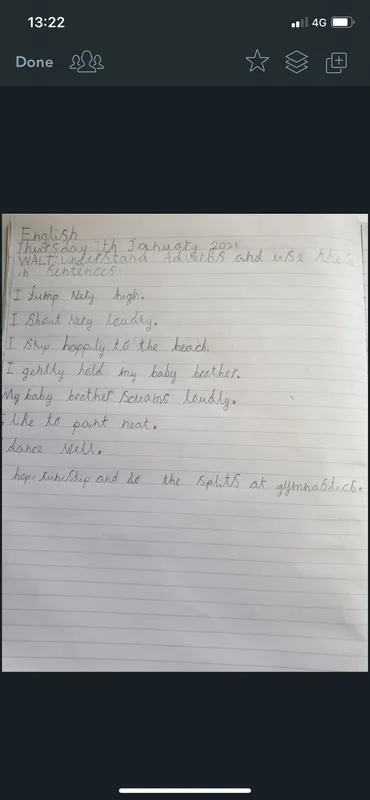 13:22
4G
Done
English
Thursday 7th January 2021
WALT: understand Adverbs and use these
in sentences
I Jump Very high.
I Shout Very loudly.
I Skip happily to the beach.
I gently hold my baby brother.
My baby brother screams loudly.
I like to paint neat.
dance Well.
hop skip and do the splits at gymnastics.